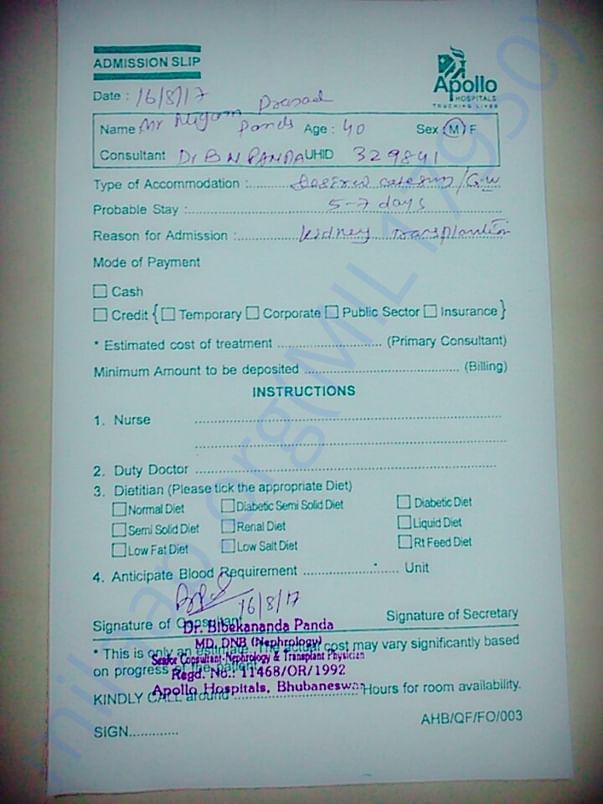 ADMISSION SLIP
Apollo
HOSPITALS
TOUCHING LIVES
Date : 16/8/17
Name Mr Prasad
Panda Age : 40 Sex (M) F
Consultant Dr B N PANDA UHID 329841
Type of Accommodation : Desired category / GW
Probable Stay : 5-7 days
Reason for Admission : kidney transplantation
Mode of Payment
Cash
Credit { Temporary Corporate Public Sector Insurance }
* Estimated cost of treatment .................... (Primary Consultant)
Minimum Amount to be deposited .................... (Billing)
INSTRUCTIONS
1. Nurse ....................
2. Duty Doctor ....................
3. Dietitian (Please tick the appropriate Diet)
Normal Diet Diabetic Semi Solid Diet Diabetic Diet
Semi Solid Diet Renal Diet Liquid Diet
Low Fat Diet Low Salt Diet Rt Feed Diet
4. Anticipate Blood Requirement .................... Unit
16/8/17
Signature of Consultant Signature of Secretary
Dr. Bibekananda Panda
MD, DNB (Nephrology)
Senior Consultant-Nephrology & Transplant Physician
Regd. No.: 11468/OR/1992
Apollo Hospitals, Bhubaneswar
* This is only an estimate. The actual cost may vary significantly based
on progress of the patient
KINDLY CALL around .................... Hours for room availability.
SIGN.............
AHB/QF/FO/003